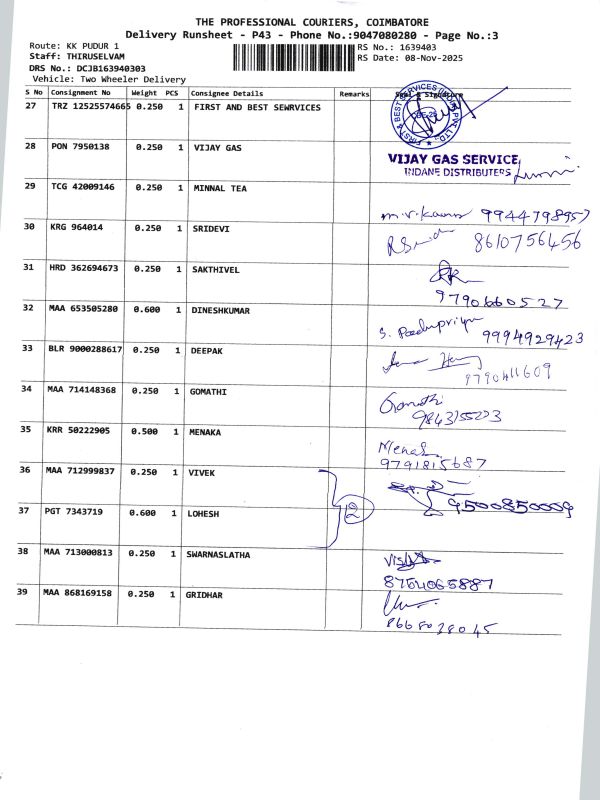 THE PROFESSIONAL COURIERS, COIMBATORE
Delivery Runsheet - P43 - Phone No.:9047080280 - Page No.:3
Route: KK PUDUR 1
RS No.: 1639403
Staff: THIRUSELVAM
RS Date: 08-Nov-2025
DRS No.: DCJB163940303
Vehicle: Two Wheeler Delivery
S No Consignment No Weight PCS Consignee Details Remarks Seal & Signature
27 TRZ 12525574665 0.250 1 FIRST AND BEST SEWRVICES
28 PON 7950138 0.250 1 VIJAY GAS
VIJAY GAS SERVICE
INDANE DISTRIBUTERS
29 TCG 42009146 0.250 1 MINNAL TEA
9944798957
30 KRG 964014 0.250 1 SRIDEVI
8610756456
31 HRD 362694673 0.250 1 SAKTHIVEL
9790660527
32 MAA 653505280 0.600 1 DINESHKUMAR
9994929423
33 BLR 9000288617 0.250 1 DEEPAK
9790411609
34 MAA 714148368 0.250 1 GOMATHI
Gomathi
9843155223
35 KRR 50222905 0.500 1 MENAKA
9791815687
36 MAA 712999837 0.250 1 VIVEK
2
9500850009
37 PGT 7343719 0.600 1 LOHESH
38 MAA 713000813 0.250 1 SWARNASLATHA
8754065887
39 MAA 868169158 0.250 1 GRIDHAR
8668038045